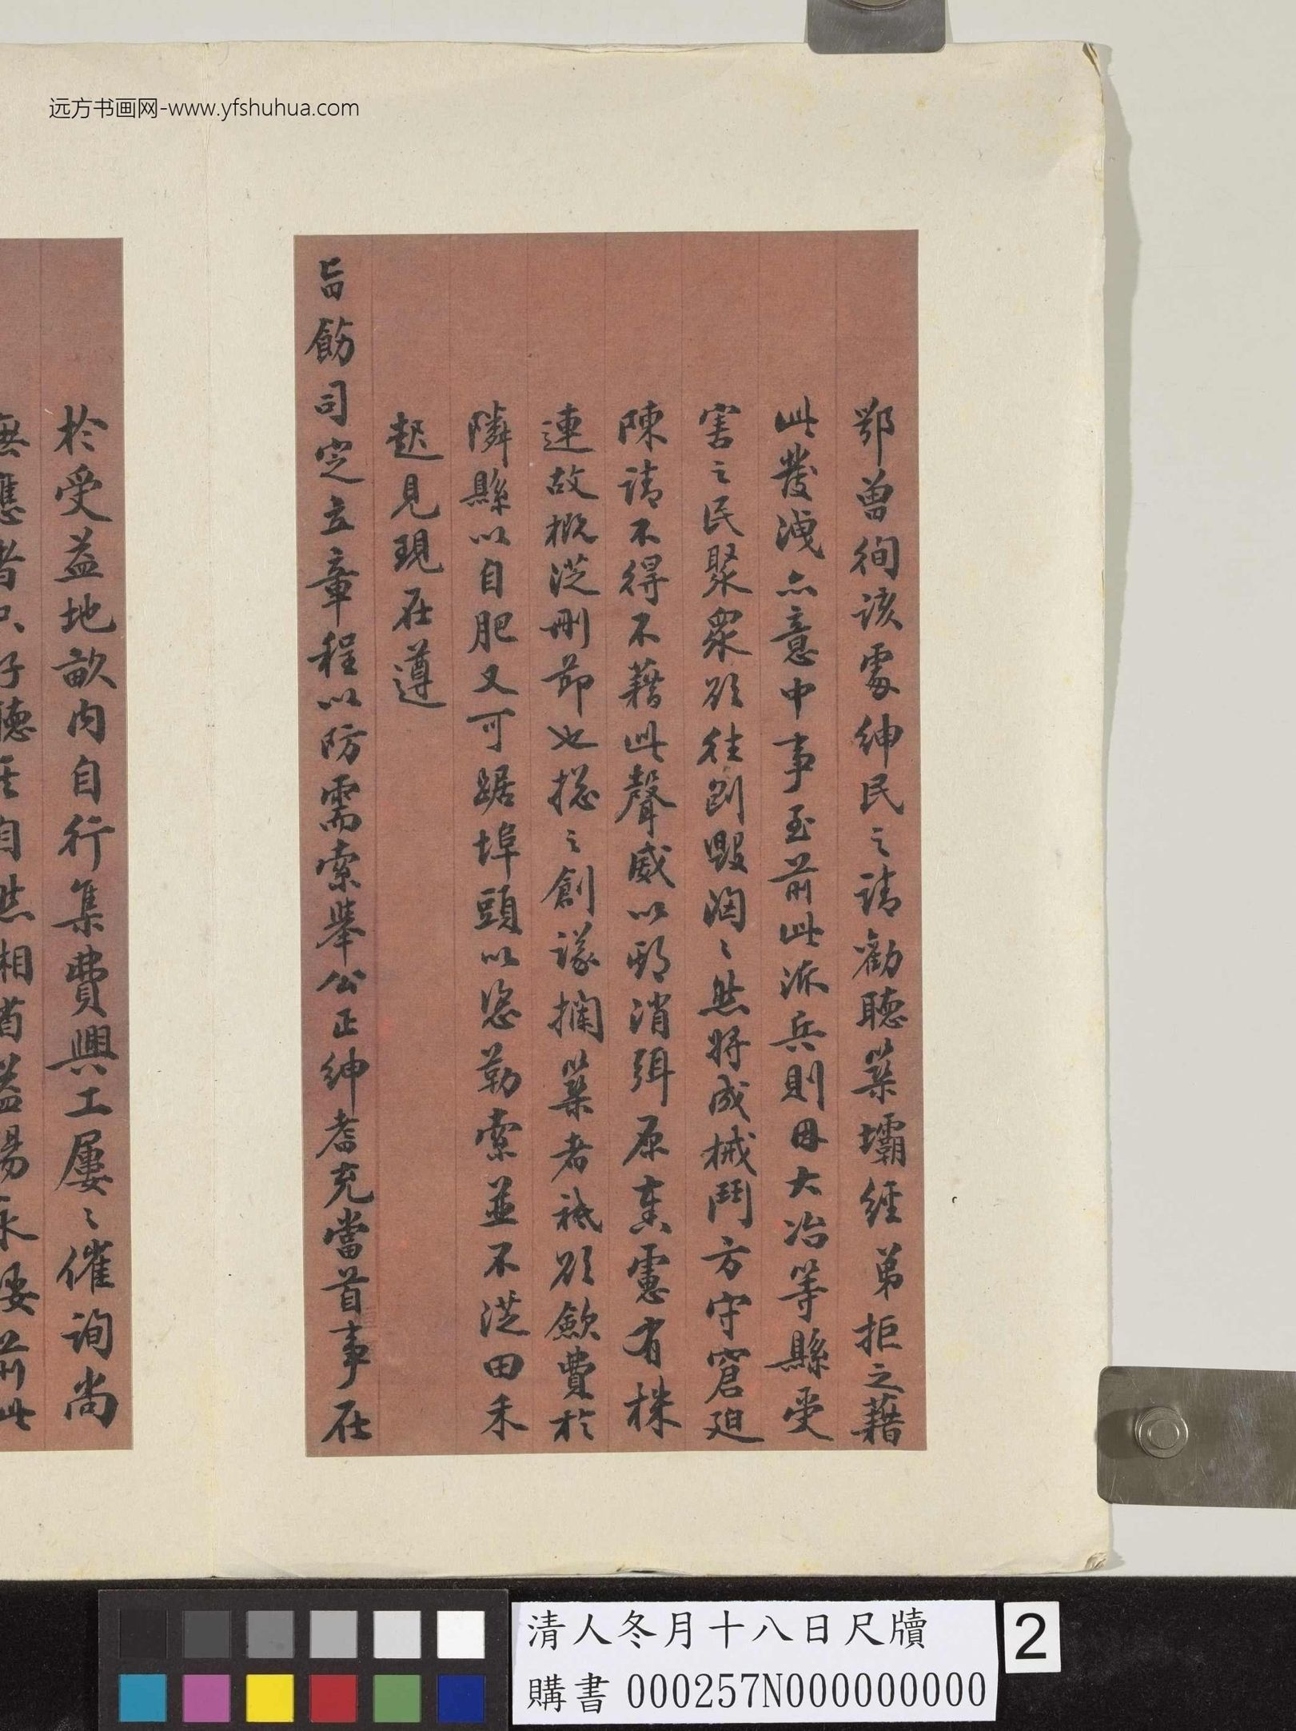 远方书画网-www.yfshuhua.com
鄂曾徇該處紳民之請勸聽築壩經弟拒之藉
此發洩亦意中事至前此派兵則因大冶等縣受
害之民聚衆欲往剷毀洶洶然將成械鬥方守窘迫
陳請不得不藉此聲威以期消弭原奏慮有株
連故概從刪節也揔之創議攔築者祗欲歛費於
隣縣以自肥又可踞埠頭以恣勒索並不從田禾
起見現在遵
旨飭司定立章程以防需索舉公正紳耆充當首事在
於受益地畝內自行集費興工屢屢催詢尚
無應者只好聽其自然相
清人冬月十八日尺牘
購書 000257N000000000
2